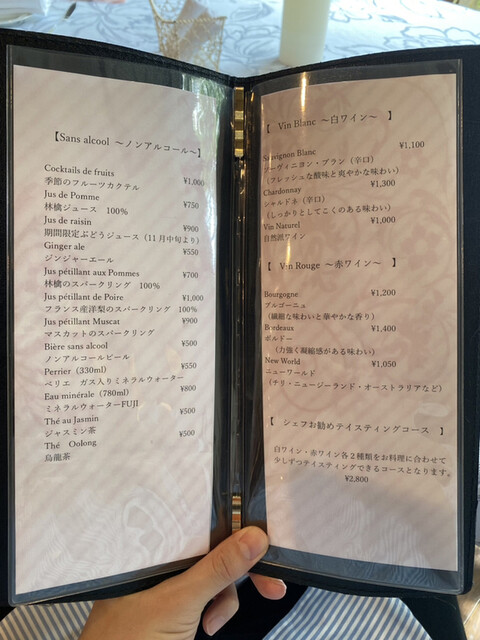 【Sans alcool ～ノンアルコール～】
Cocktails de fruits
季節のフルーツカクテル ¥1,000
Jus de Pomme
林檎ジュース 100% ¥750
Jus de raisin
期間限定ぶどうジュース（11月中旬より） ¥900
Ginger ale
ジンジャーエール ¥550
Jus pétillant aux Pommes
林檎のスパークリング 100% ¥700
Jus pétillant de Poire
フランス産洋梨のスパークリング 100% ¥1,000
Jus pétillant Muscat
マスカットのスパークリング ¥900
Bière sans alcool
ノンアルコールビール ¥500
Perrier（330ml）
ペリエ ガス入りミネラルウォーター ¥550
Eau minérale（780ml）
ミネラルウォーターFUJI ¥800
Thé au Jasmin
ジャスミン茶 ¥500
Thé Oolong
烏龍茶 ¥500
【 Vin Blanc ～白ワイン～ 】
Sauvignon Blanc ¥1,100
ソーヴィニヨン・ブラン（辛口）
（フレッシュな酸味と爽やかな味わい）
Chardonnay ¥1,300
シャルドネ（辛口）
（しっかりとしてこくのある味わい）
Vin Naturel ¥1,000
自然派ワイン
【 Vin Rouge ～赤ワイン～ 】
Bourgogne ¥1,200
ブルゴーニュ
（繊細な味わいと華やかな香り）
Bordeaux ¥1,400
ボルドー
（力強く凝縮感がある味わい）
New World ¥1,050
ニューワールド
（チリ・ニュージーランド・オーストラリアなど）
【 シェフお勧めテイスティングコース 】
白ワイン・赤ワイン各２種類をお料理に合わせて
少しずつテイスティングできるコースとなります。
¥2,800